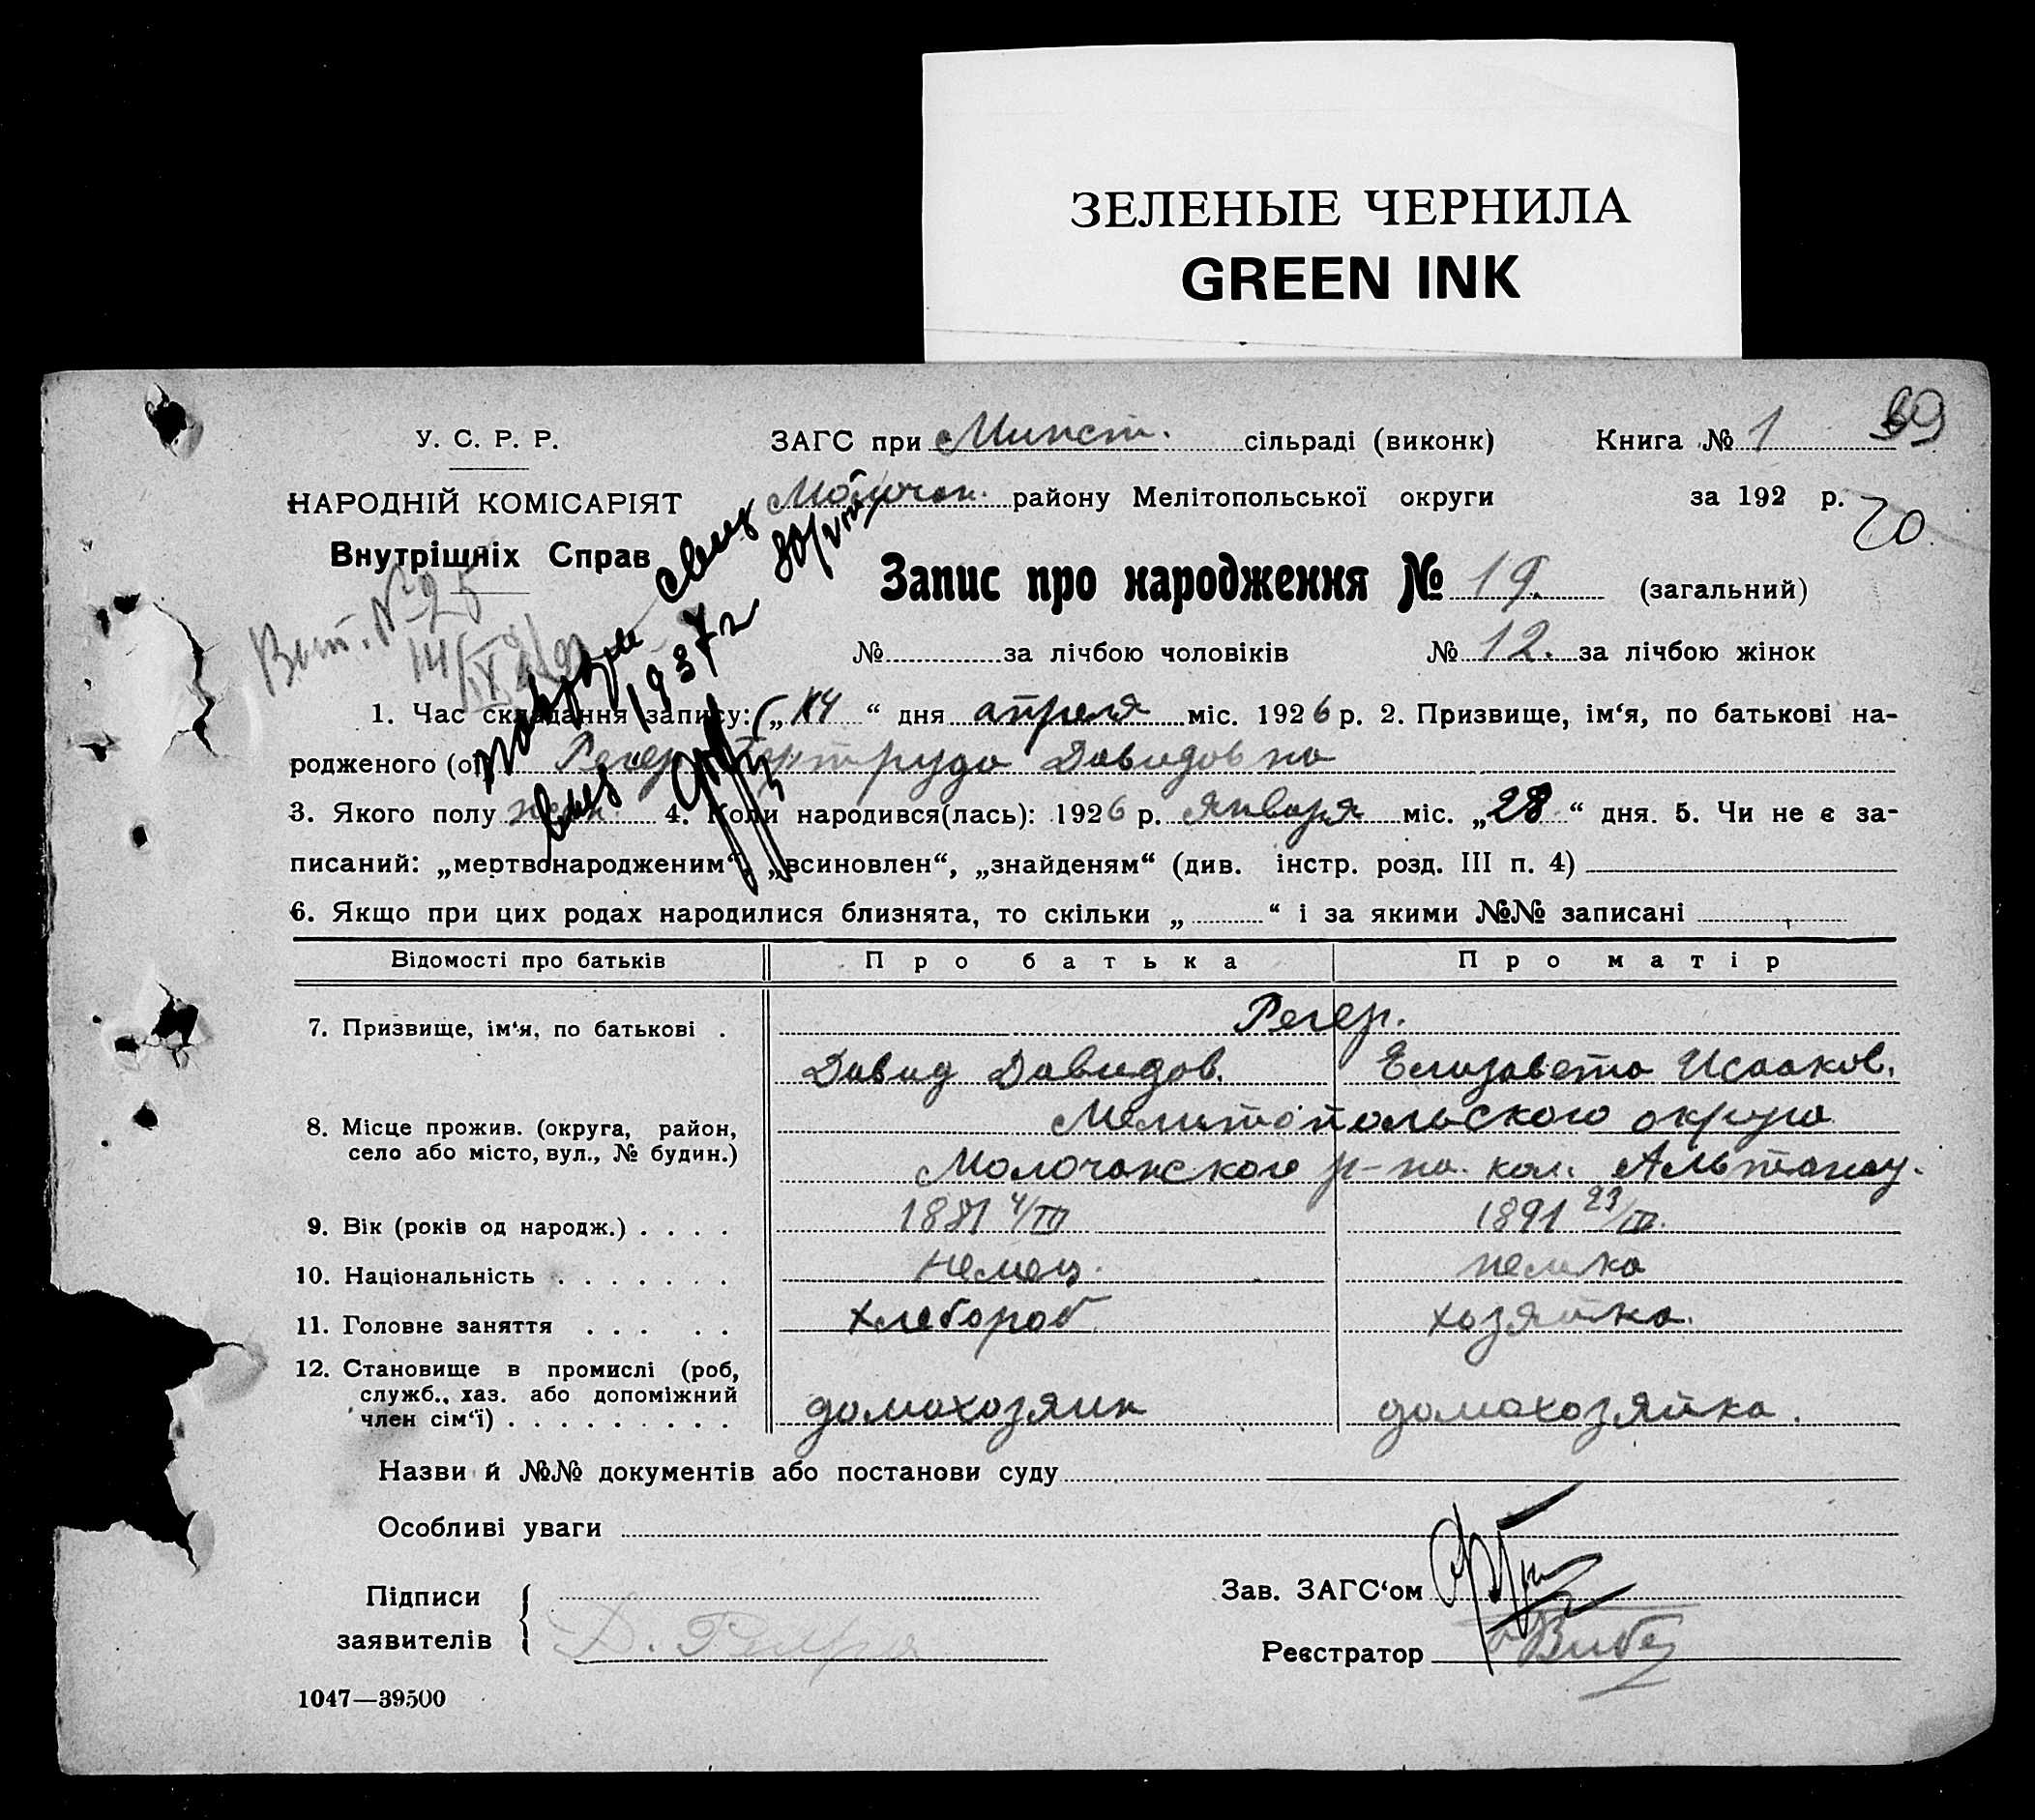 ЗЕЛЕНЫЕ ЧЕРНИЛА
GREEN INK
У. С. Р. Р. ЗАГС при сільраді (виконк) Книга № 1 69
НАРОДНІЙ КОМІСАРІЯТ Молочан. району Мелітопольської округи за 192 р.
20.
Внутрішніх Справ
Запис про народження № 19. (загальний)
Вып. № 25
№ за лічбою чоловіків № 12. за лічбою жінок
1937 г
1. Час складання запису: „14“ дня апреля міс. 1926 р. 2. Призвище, ім‘я, по батькові на-
родженого (ої) Регер Гертруда Давидовна
3. Якого полу женск. 4. Коли народився(лась): 1926 р. Января міс. „28“ дня. 5. Чи не є за-
писаний: „мертвонародженим“, „всиновлен“, „знайденям“ (див. інстр. розд. III п. 4)
6. Якщо при цих родах народилися близнята, то скільки „ “ і за якими №№ записані
Відомості про батьків Про батька Про матір
7. Призвище, ім‘я, по батькові . Регер.
Давид Давидов. Елизавета Исааков.
8. Місце прожив. (округа, район, Мелитопольского округа
село або місто, вул., № будин.) Молочанского р-на. кол. Альтонау.
9. Вік (років од народж.) . . . . 1881 4/III 1891 23/III.
10. Національність . . . . . . . немец. немка
11. Головне заняття . . . . . хлебороб хозяйка.
12. Становище в промислі (роб,
служб., хаз. або допоміжний
член сім‘ї) . . . . . . . . . домохозяин домохозяйка.
Назви й №№ документів або постанови суду
Особливі уваги
Підписи Зав. ЗАГС‘ом
заявителів Д. Регер Реєстратор
1047—39500